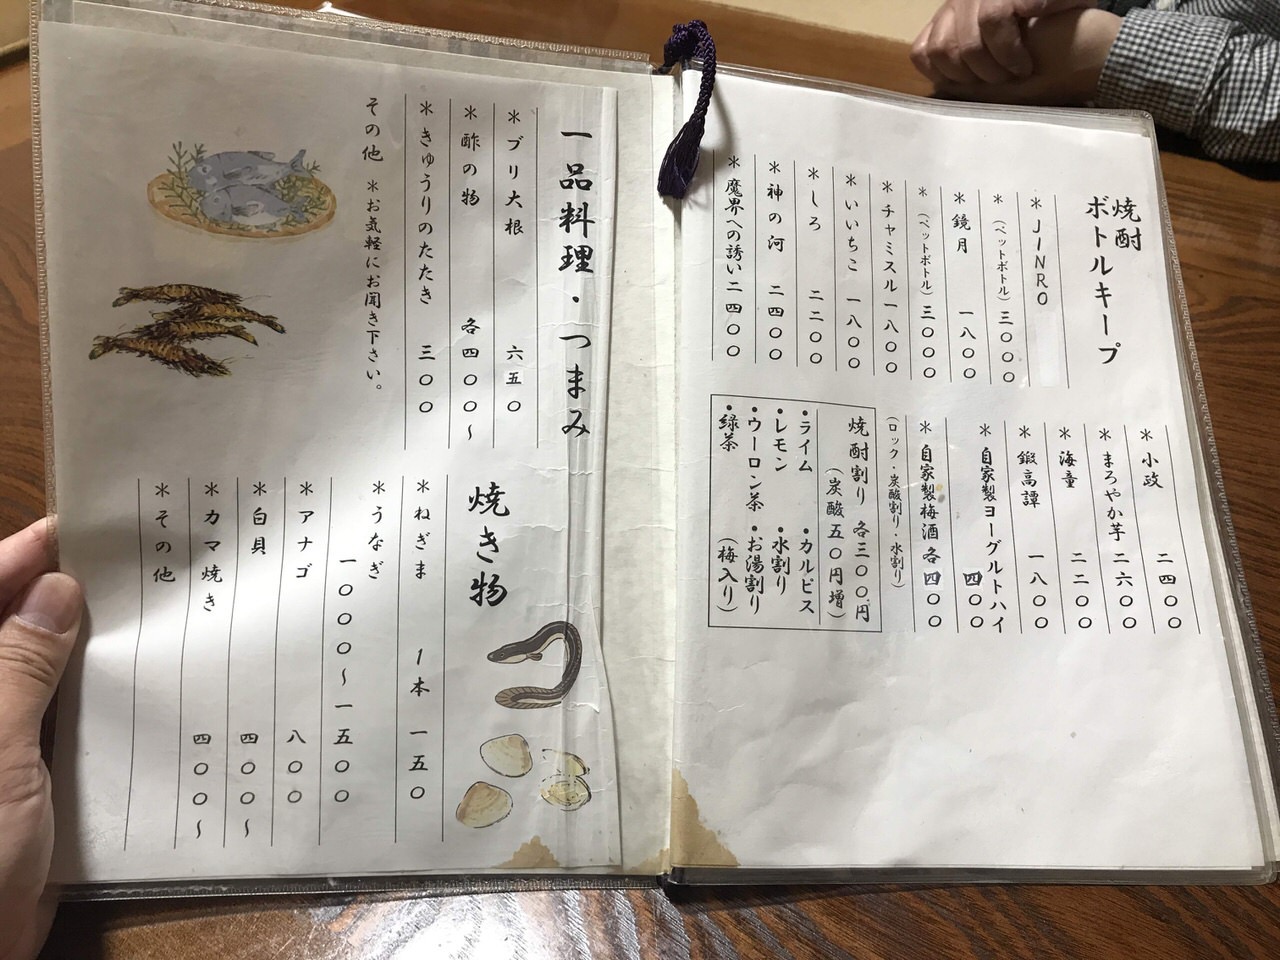 焼酎
ボトルキープ
＊JINRO
＊(ペットボトル)三〇〇〇
＊鏡月 一八〇〇
＊(ペットボトル)三〇〇〇
＊チャミスル 一八〇〇
＊いいちこ 一八〇〇
＊しろ 二二〇〇
＊神の河 二四〇〇
＊魔界への誘い 二四〇〇
＊小政 二四〇〇
＊まろやか芋 二六〇〇
＊海童 二二〇〇
＊鍛高譚 一八〇〇
＊自家製ヨーグルトハイ
四〇〇
＊自家製梅酒 各四〇〇
(ロック・炭酸割り・水割り)
焼酎割り 各三〇〇円
(炭酸五〇円増)
・ライム ・カルピス
・レモン ・水割り
・ウーロン茶 ・お湯割り
・緑茶 (梅入り)
一品料理・つまみ
＊ブリ大根 六五〇
＊酢の物 各四〇〇〜
＊きゅうりのたたき 三〇〇
その他 ＊お気軽にお聞き下さい。
焼き物
＊ねぎま 1本 一五〇
＊うなぎ
一〇〇〇〜一五〇〇
＊アナゴ 八〇〇
＊白貝 四〇〇〜
＊カマ焼き 四〇〇〜
＊その他